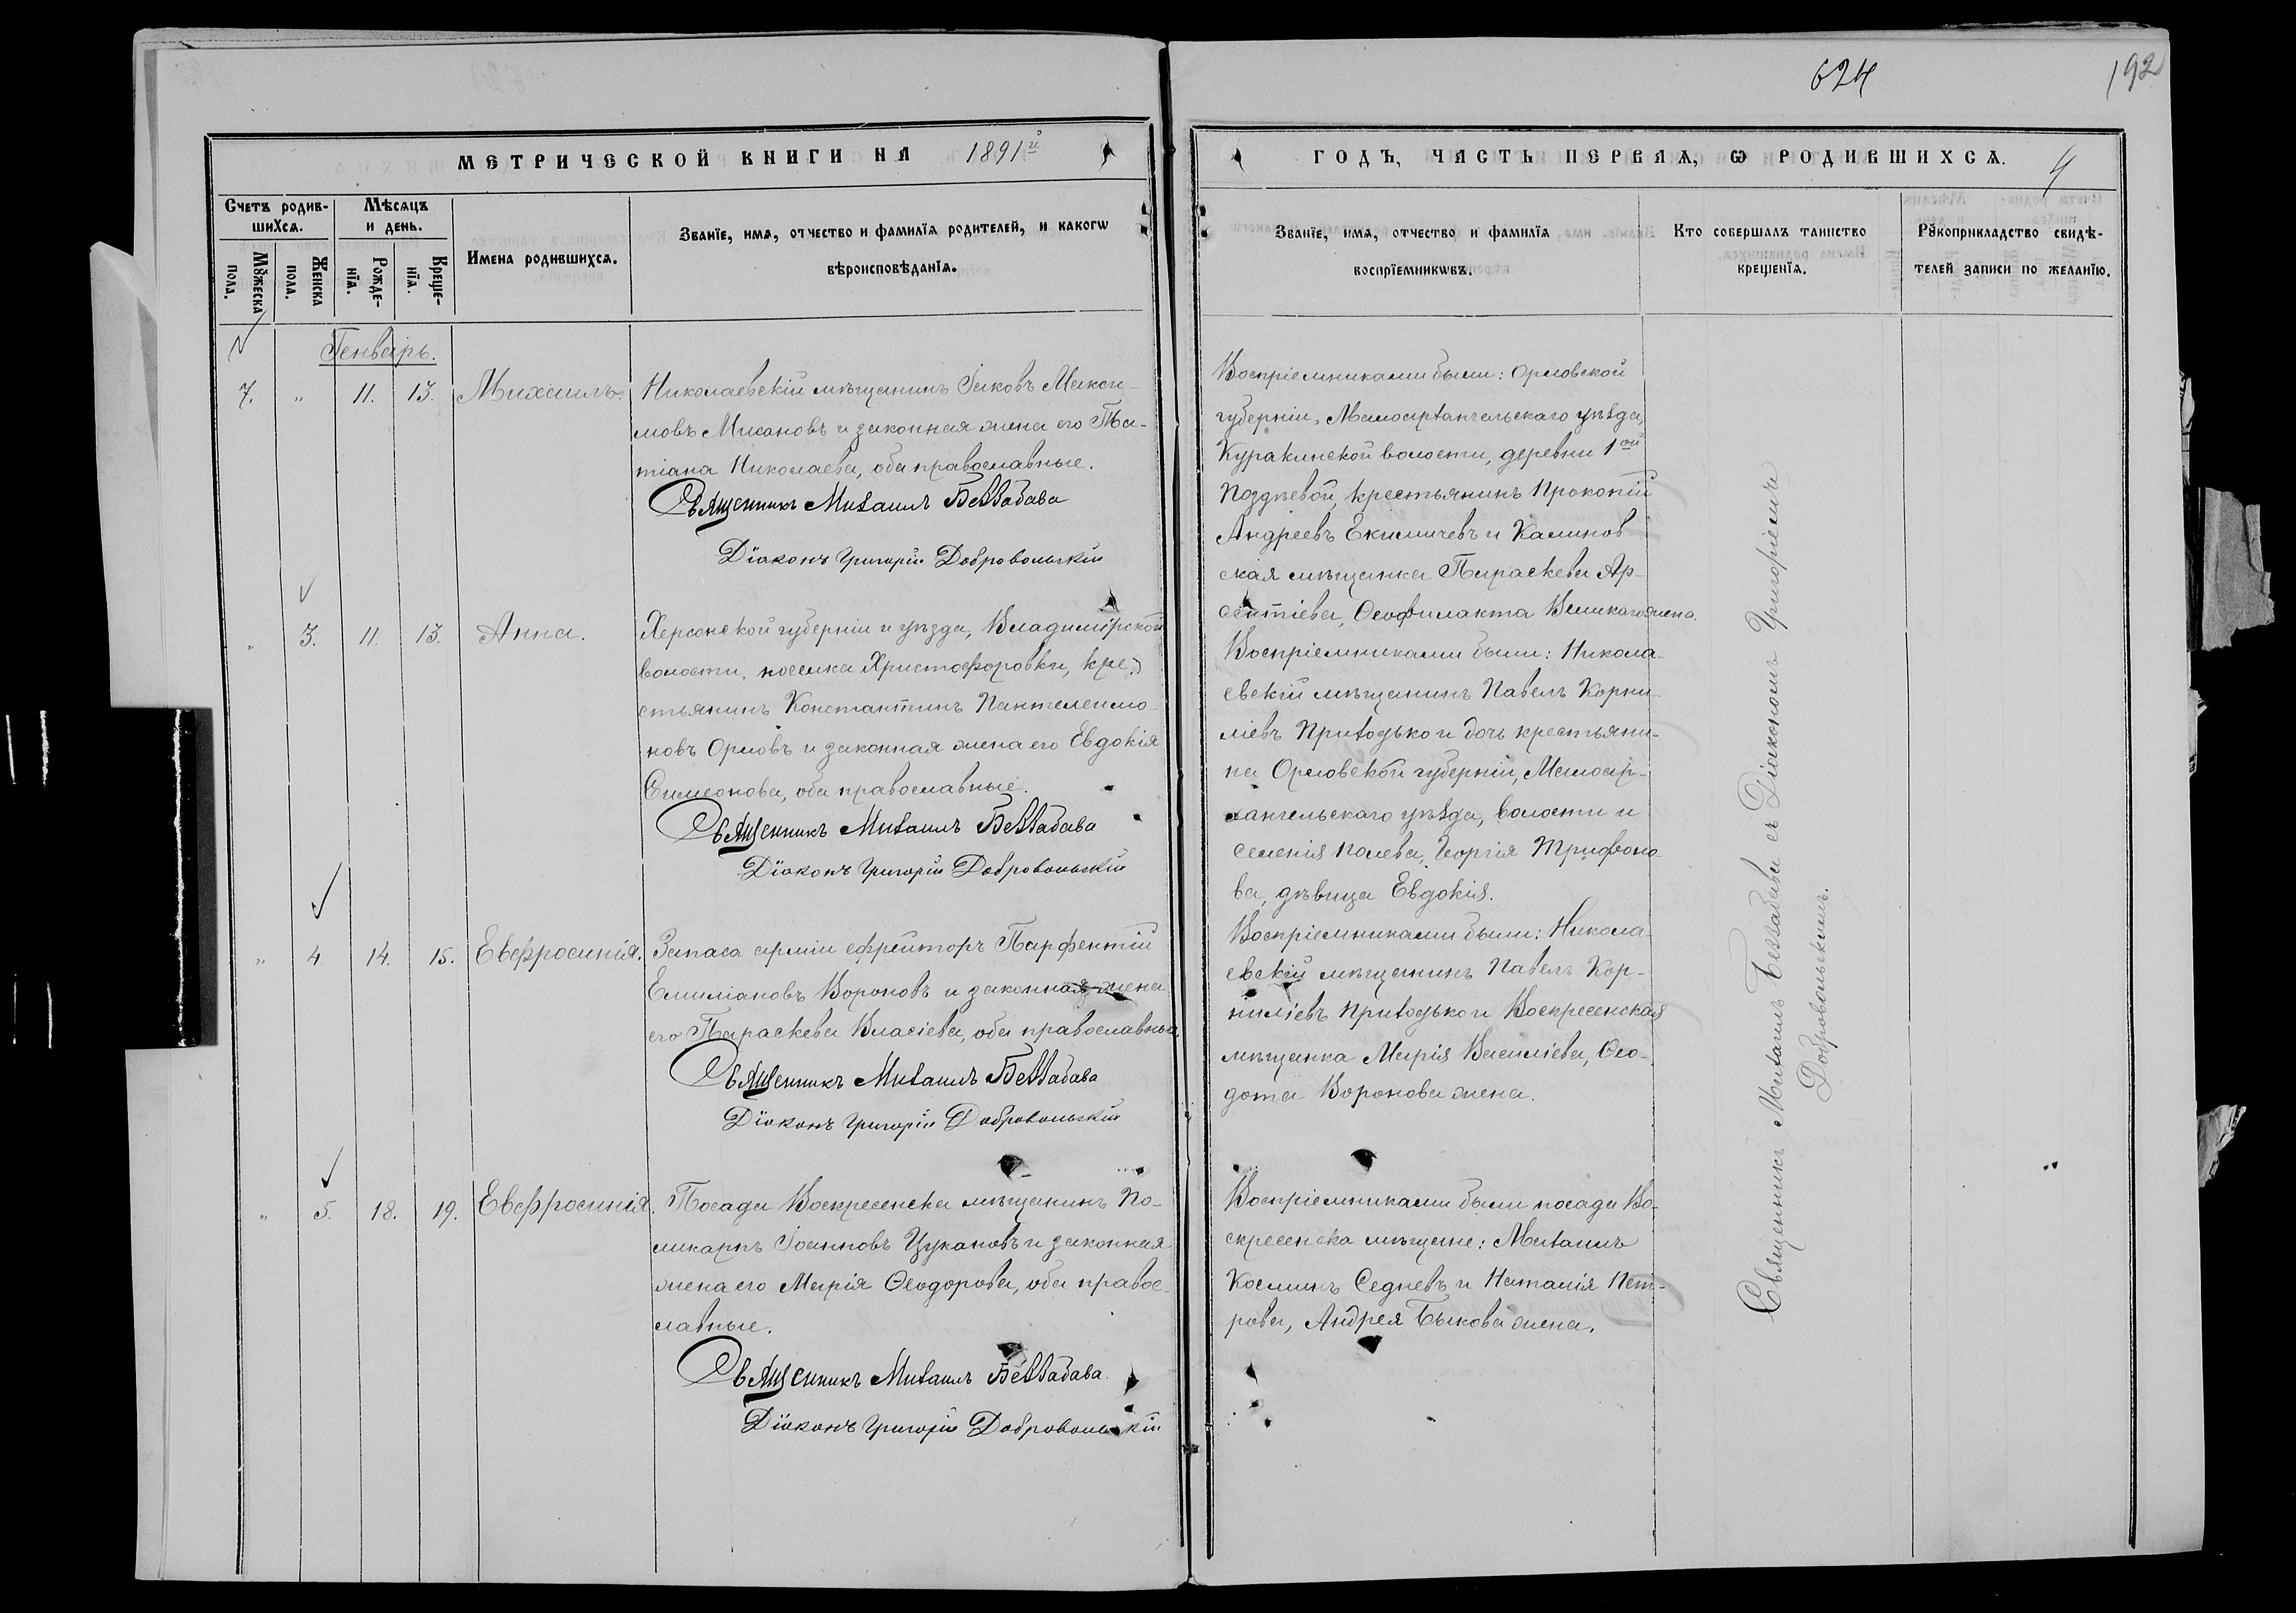 624
192
МЕТРИЧЕСКОЙ КНИГИ НА 1891й
ГОДЪ, ЧАСТЬ ПЕРВАЯ, Ѡ РОДИВШИХСЯ.
4
Счетъ родив-
шихся.
Мѣсяцъ
и день.
Мꙋжеска
пола.
Женска
пола.
Рожде-
нїя.
Креще-
нїя.
Имена родившихся.
Званїе, имя, отчество и фамилїя родителей, и какогѡ
вѣроисповѣданїя.
Званїе, имя, отчество и фамилїя
воспрїемникѡвъ.
Кто совершалъ таинство
крещенїя.
Рꙋкоприкладство свидѣ-
телей записи по желанїю.
Генварь.
7. " 11. 13. Михаилъ.
Николаевскій мѣщанинъ Іаковъ Макси-
мовъ Мисановъ и законная жена его Та-
тіана Николаева, оба православные.
Священникъ Михаилъ Беззабава
Діаконъ Григорій Добровольскій
Воспріемниками были: Орловской
губерніи, Малоархангельскаго уѣзда,
Куракинской волости, деревни 1ой
Поздѣевой, крестьянинъ Прокопій
Андреевъ Екимичевъ и Калинов
ская мѣщанка Параскева Ар-
сентіева, Ѳеофилакта Великаго жена.
" 3. 11. 13. Анна.
Херсонской губерніи и уѣзда, Владимірской
волости, поселка Христофоровки, кре-
стьянинъ Константинъ Пантелеимо-
новъ Орловъ и законная жена его Евдокія
Симеонова, оба православные.
Священникъ Михаилъ Беззабава
Діаконъ Григорій Добровольскій
Воспріемниками были: Никола-
евскій мѣщанинъ Павелъ Корни-
ліевъ Приходько и дочь крестьяни-
на Орловской губерніи, Малоар-
хангельскаго уѣзда, волости и
селенія Полева, Георгія Трифоно-
ва, дѣвица Евдокія.
" 4. 14. 15. Евфросинія.
Запаса арміи ефрейторъ Парфентій
Емиліановъ Вороновъ и законная жена
его Параскева Власіева, оба православные
Священникъ Михаилъ Беззабава
Діаконъ Григорій Добровольскій
Воспріемниками были: Никола-
евскій мѣщанинъ Павелъ Кор-
ниліевъ Приходько и Воскресенская
мѣщанка Марія Василіева, Ѳео-
дота Воронова жена.
" 5. 18. 19. Евфросинія.
Посада Воскресенска мѣщанинъ По-
ликарпъ Іоанновъ Цукановъ и законная
жена его Марія Ѳеодорова, оба правос-
лавные.
Священникъ Михаилъ Беззабава
Діаконъ Григорій Добровольскій
Воспріемниками были посада Во-
скресенска мѣщане: Михаилъ
Косминъ Седневъ и Наталія Пет-
рова, Андрея Быкова жена.
Священникъ Михаилъ Беззабава съ Діакономъ Григоріемъ
Добровольскимъ.